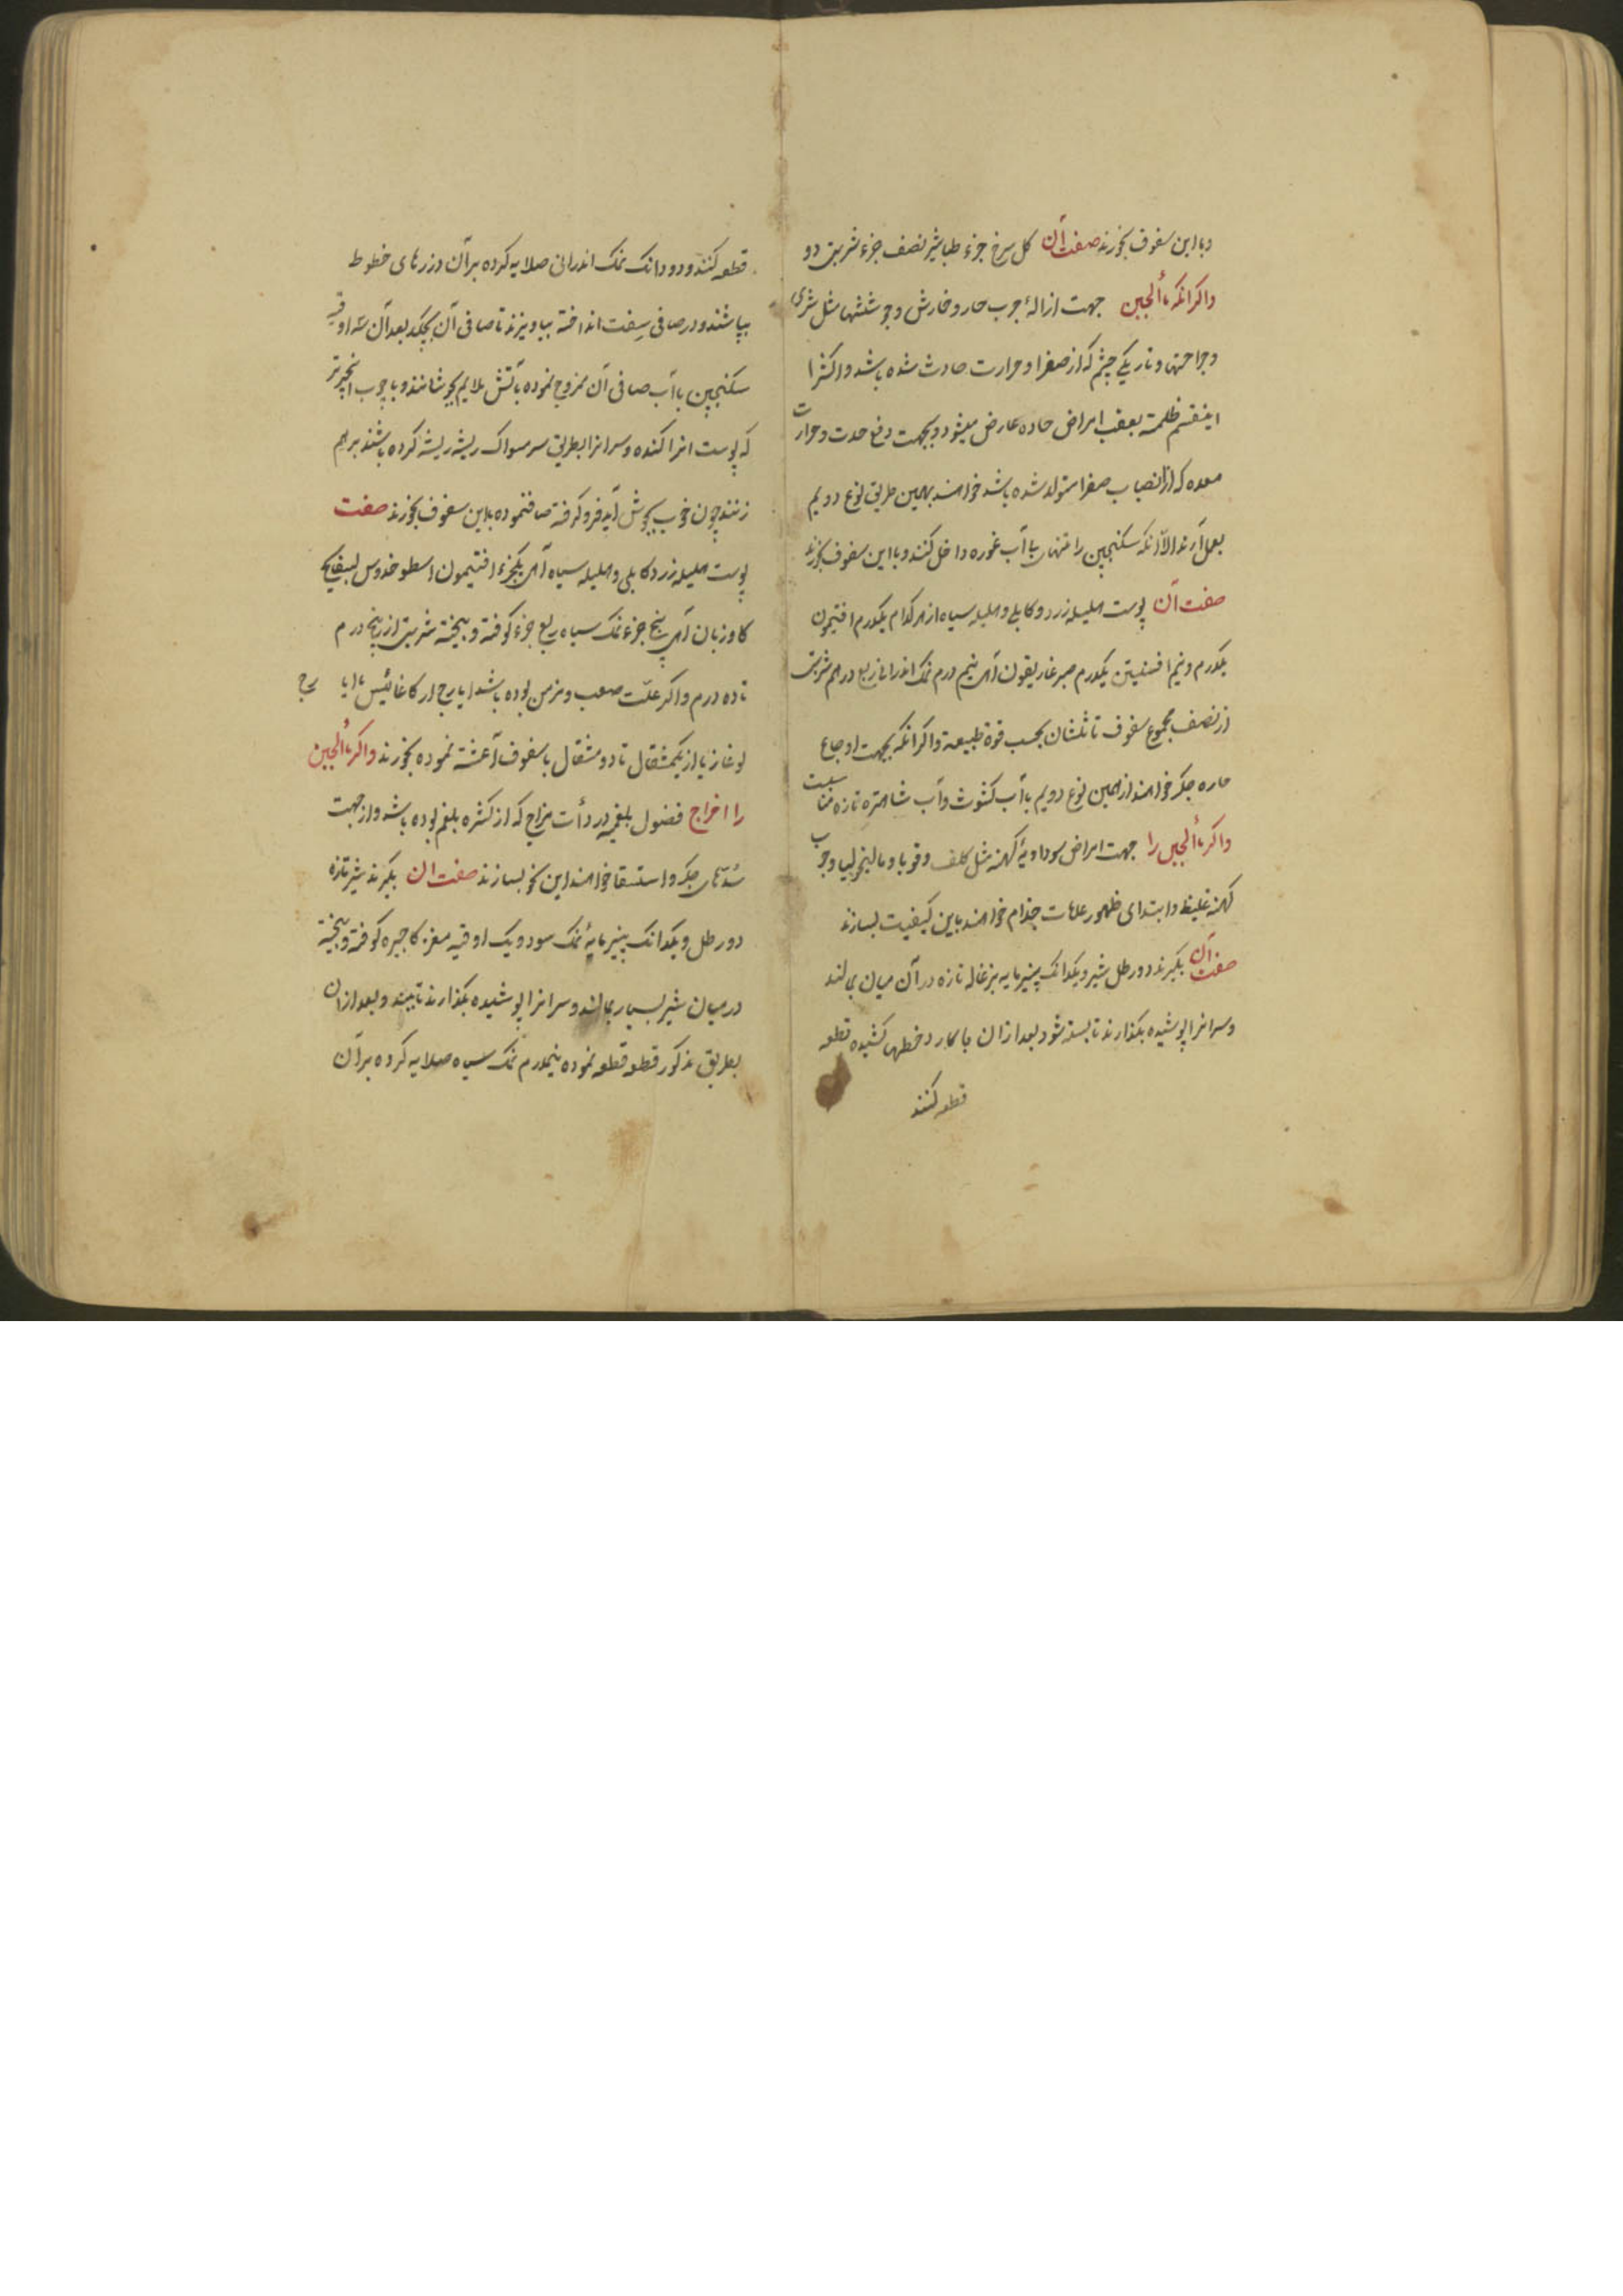 و با این سفوف بخورند صفت آن کل سرخ جزء طباشیر نصف جزء شربتی دو
و اکر انکه ماء الجبن جهت ازالۀ جرب حار و خارش و جوششها مثل شری
و جراحتها و تاریکی چشم که از صفرا و حرارت حادث شده باشد و اکثرا
اینقسم ظلمة بعقب امراض حاده عارض میشود و بجهت دفع حدت و حرارت
معده که از انصباب صفرا متولد شده باشد خواهند بهمین طریق نوع دویم
بعمل آرند الا آنکه سکنجبین را تنها با آب غوره داخل کنند و با این سفوف بخورند
صفت آن پوست هلیله زرد و کابلی و هلیله سیاه از هر کدام یکدرم افتیمون
یکدرم و نیم افسنتین یکدرم صبر غاریقون آهـ نیم درم نمک اندرانی ربع درهم شربتی
از نصف مجموع سفوف تا ثلثان بحسب قوة طبیعة و اکر انکه بجهت اوجاع
حاره جکر خواهند از همین نوع دویم با آب کشوث و آب شاهتره تازه مناسبت
و اکر ماء الجبن را جهت امراض سوداویۀ کهنه مثل کلف و قوبا و مالیخولیا و جرب
کهنه غلیظ و ابتدای ظهور علامات جذام خواهند باین کیفیت بسازند
صفت آن بکیرند دو رطل شیر و یکدانک پنیر مایه بزغاله تازه در آن میان بمالند
و سر انرا پوشیده بکذارند تا بسته شود بعد از ان با کارد خطها کشیده قطعه
قطعه کنند
قطعه کنند و دو دانک نمک اندرانی صلایه کرده بر آن درزهای خطوط
بپاشند و در صافی سفت انداخته بیاویزند تا صافی آن بچکد بعد آن سه اوقیه
سکنجبین با آب صافی آن ممزوج نموده بآتش ملایم بجوشانند و با چوب انجیر تر
که پوست انرا کنده و سر انرا بطریق سر مسواک ریشه ریشه کرده باشند بر هم
زنند چون خوب بجوش آید فرو کرفته صاف نموده باین سفوف بخورند صفت
پوست هلیله زرد کابلی و هلیله سیاه آهـ یکجزء افتیمون اسطوخدوس بسفایج
کاوزبان آهـ پنج جزء نمک سیاه ربع جزء کوفته و بیخته شربتی از پنج درم
تا ده درم و اکر علّت صعب و مزمن بوده باشد ایارج ارکاغانیس یا ایارج
لوغازیا از یکمثقال تا دو مثقال با سفوف آغشته نموده بخورند و اکر ماء الجبن
را اخراج فضول بلغمیه و ردأت مزاج که از کثرة بلغم بوده باشد و از جهت
سدّهای جکر و استسقا خواهند این نحو بسازند صفت ان بکیرند شیر تازه
دو رطل و یکدانک پنیر مایۀ نمک سود و یک اوقیه مغز کاجیره کوفته و بیخته
در میان شیر بسیار بمالند و سر انرا پوشیده بکذارند تا ببندد و بعد از ان
بطریق مذکور قطعه قطعه نموده نیمدرم نمک سیاه صلایه کرده بر آن